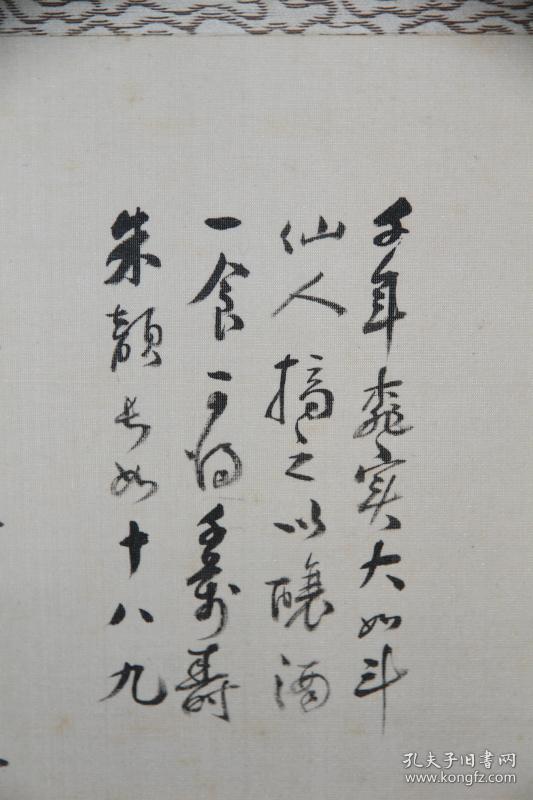 千年桃实大如斗
仙人摘之以酿酒
一食可得千万寿
朱颜长如十八九
孔夫子旧书网
www.kongfz.com